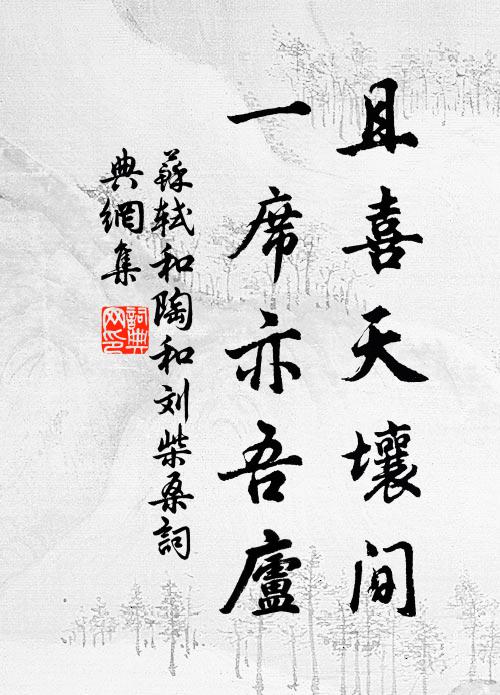 且喜天壤间
一席亦吾廬
蘇軾和陶和刘柴桑詞
典網集
詞典
网印